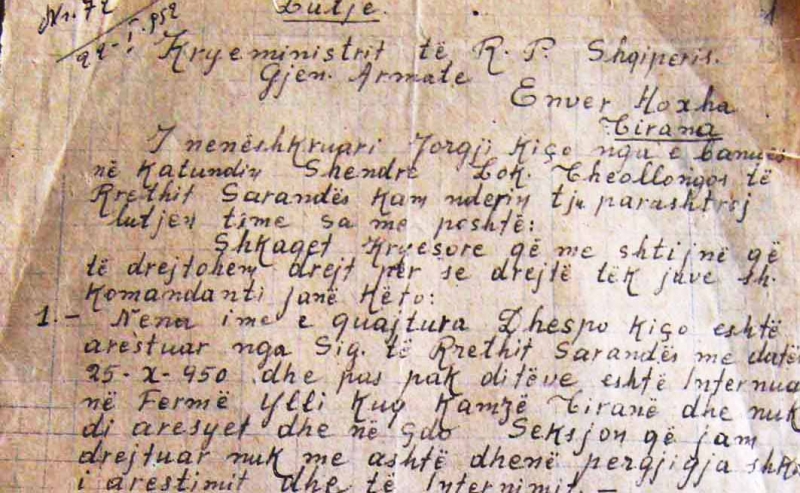 Lutje.
1
Nr. 72
22-I-952
Kryeministrit të R. P. Shqiperis.
Gjen. Armate
Enver Hoxha
Tirana
I nenëshkruari Jorgji Kiço nga e banues
në Katundin Shendre Lok. Theollongos të
Rrethit Sarandës kam nderin tju parashtroj
lutjen time sa me poshtë:
Shkaget Kryesore që me shtijnë që
të drejtohem drejt për se drejtë tëk juve sh.
Komandanti janë Këto:
1.- Nena ime e quajtura Dhespo Kiço eshtë
arestuar nga Sig. të Rrethit Sarandës me datë
25-X-950 dhe pas pak ditëve eshtë Internua
në Fermë Ylli Kuq Kamzë Tiranë dhe nuk
di aresyet dhe në Gdo Seksjon që jam
drejtuar nuk me ashtë dhenë pergjigja shka
i arestimit dhe të Internimit. -